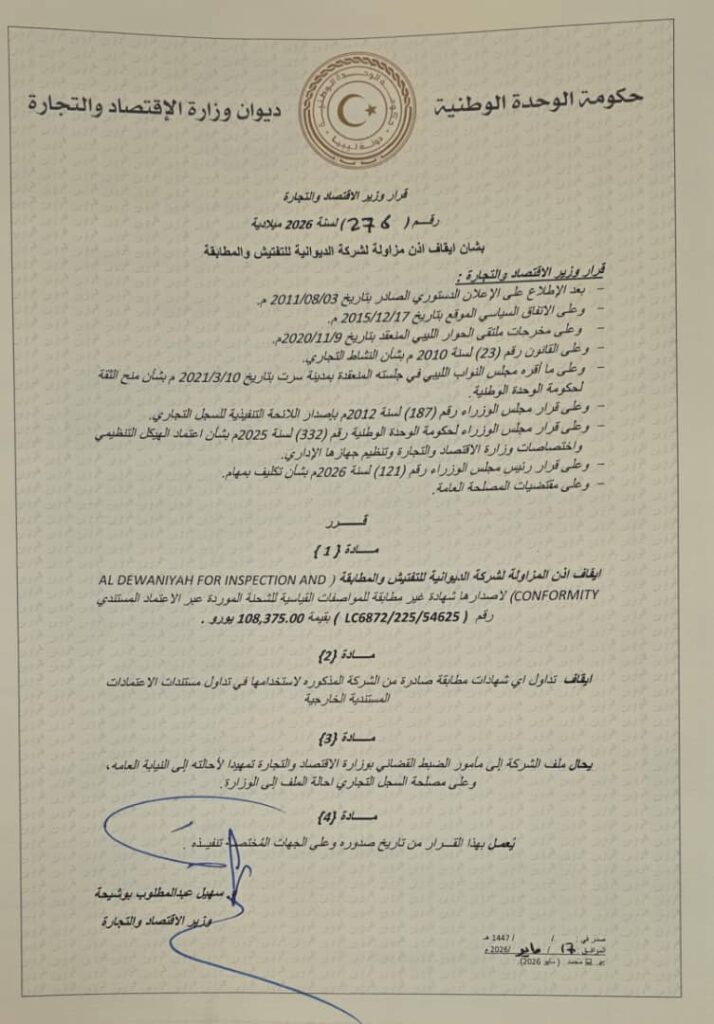 حكومة الوحدة الوطنية
ديوان وزارة الإقتصاد والتجارة
حكومة الوحدة الوطنية
دولة ليبيا
قرار وزير الاقتصاد والتجارة
رقـم ( 276 ) لسنة 2026 ميلادية
بشأن ايقاف اذن مزاولة لشركة الديوانية للتفتيش والمطابقة
قرار وزير الاقتصاد والتجارة :
– بعد الإطلاع على الإعلان الدستوري الصادر بتاريخ 2011/08/03 م.
– وعلى الاتفاق السياسي الموقع بتاريخ 2015/12/17 م.
– وعلى مخرجات ملتقى الحوار الليبي المنعقد بتاريخ 2020/11/9م.
– وعلى القانون رقم (23) لسنة 2010 م بشأن النشاط التجاري.
– وعلى ما أقره مجلس النواب الليبي في جلسته المنعقدة بمدينة سرت بتاريخ 2021/3/10 م بشأن منح الثقة
لحكومة الوحدة الوطنية.
– وعلى قرار مجلس الوزراء رقم (187) لسنة 2012م بإصدار اللائحة التنفيذية للسجل التجاري.
– وعلى قرار مجلس الوزراء لحكومة الوحدة الوطنية رقم (332) لسنة 2025م بشأن اعتماد الهيكل التنظيمي
واختصاصات وزارة الاقتصاد والتجارة وتنظيم جهازها الإداري.
– وعلى قرار رئيس مجلس الوزراء رقم (121) لسنة 2026م بشأن تكليف بمهام.
– وعلى مقتضيات المصلحة العامة.
قـــــرر
مـــادة { 1 }
ايقاف اذن المزاولة لشركة الديوانية للتفتيش والمطابقة ( AL DEWANIYAH FOR INSPECTION AND
CONFORMITY) لاصدارها شهادة غير مطابقة للمواصفات القياسية للشحنة الموردة عبر الاعتماد المستندي
رقم ( LC6872/225/54625 ) بقيمة 108,375.00 يورو .
مـــادة {2}
ايقاف تداول اي شهادات مطابقة صادرة من الشركة المذكوره لاستخدامها في تداول مستندات الاعتمادات
المستندية الخارجية
مـــادة {3}
يحال ملف الشركة إلى مأمور الضبط القضائي بوزارة الاقتصاد والتجارة تمهيدا لأحالته إلى النيابة العامه،
وعلى مصلحة السجل التجاري احالة الملف إلى الوزارة.
مـــادة {4}
يُعمل بهذا القـــرار من تاريخ صدوره وعلى الجهات المُختصة تنفيـذه .
سهيل عبدالمطلوب بوشيحة
وزير الاقتصاد والتجارة
صدر في : / / 1447 هـ
الموافق : 17 / مايو /2026 م
محمد (مايو 2026).